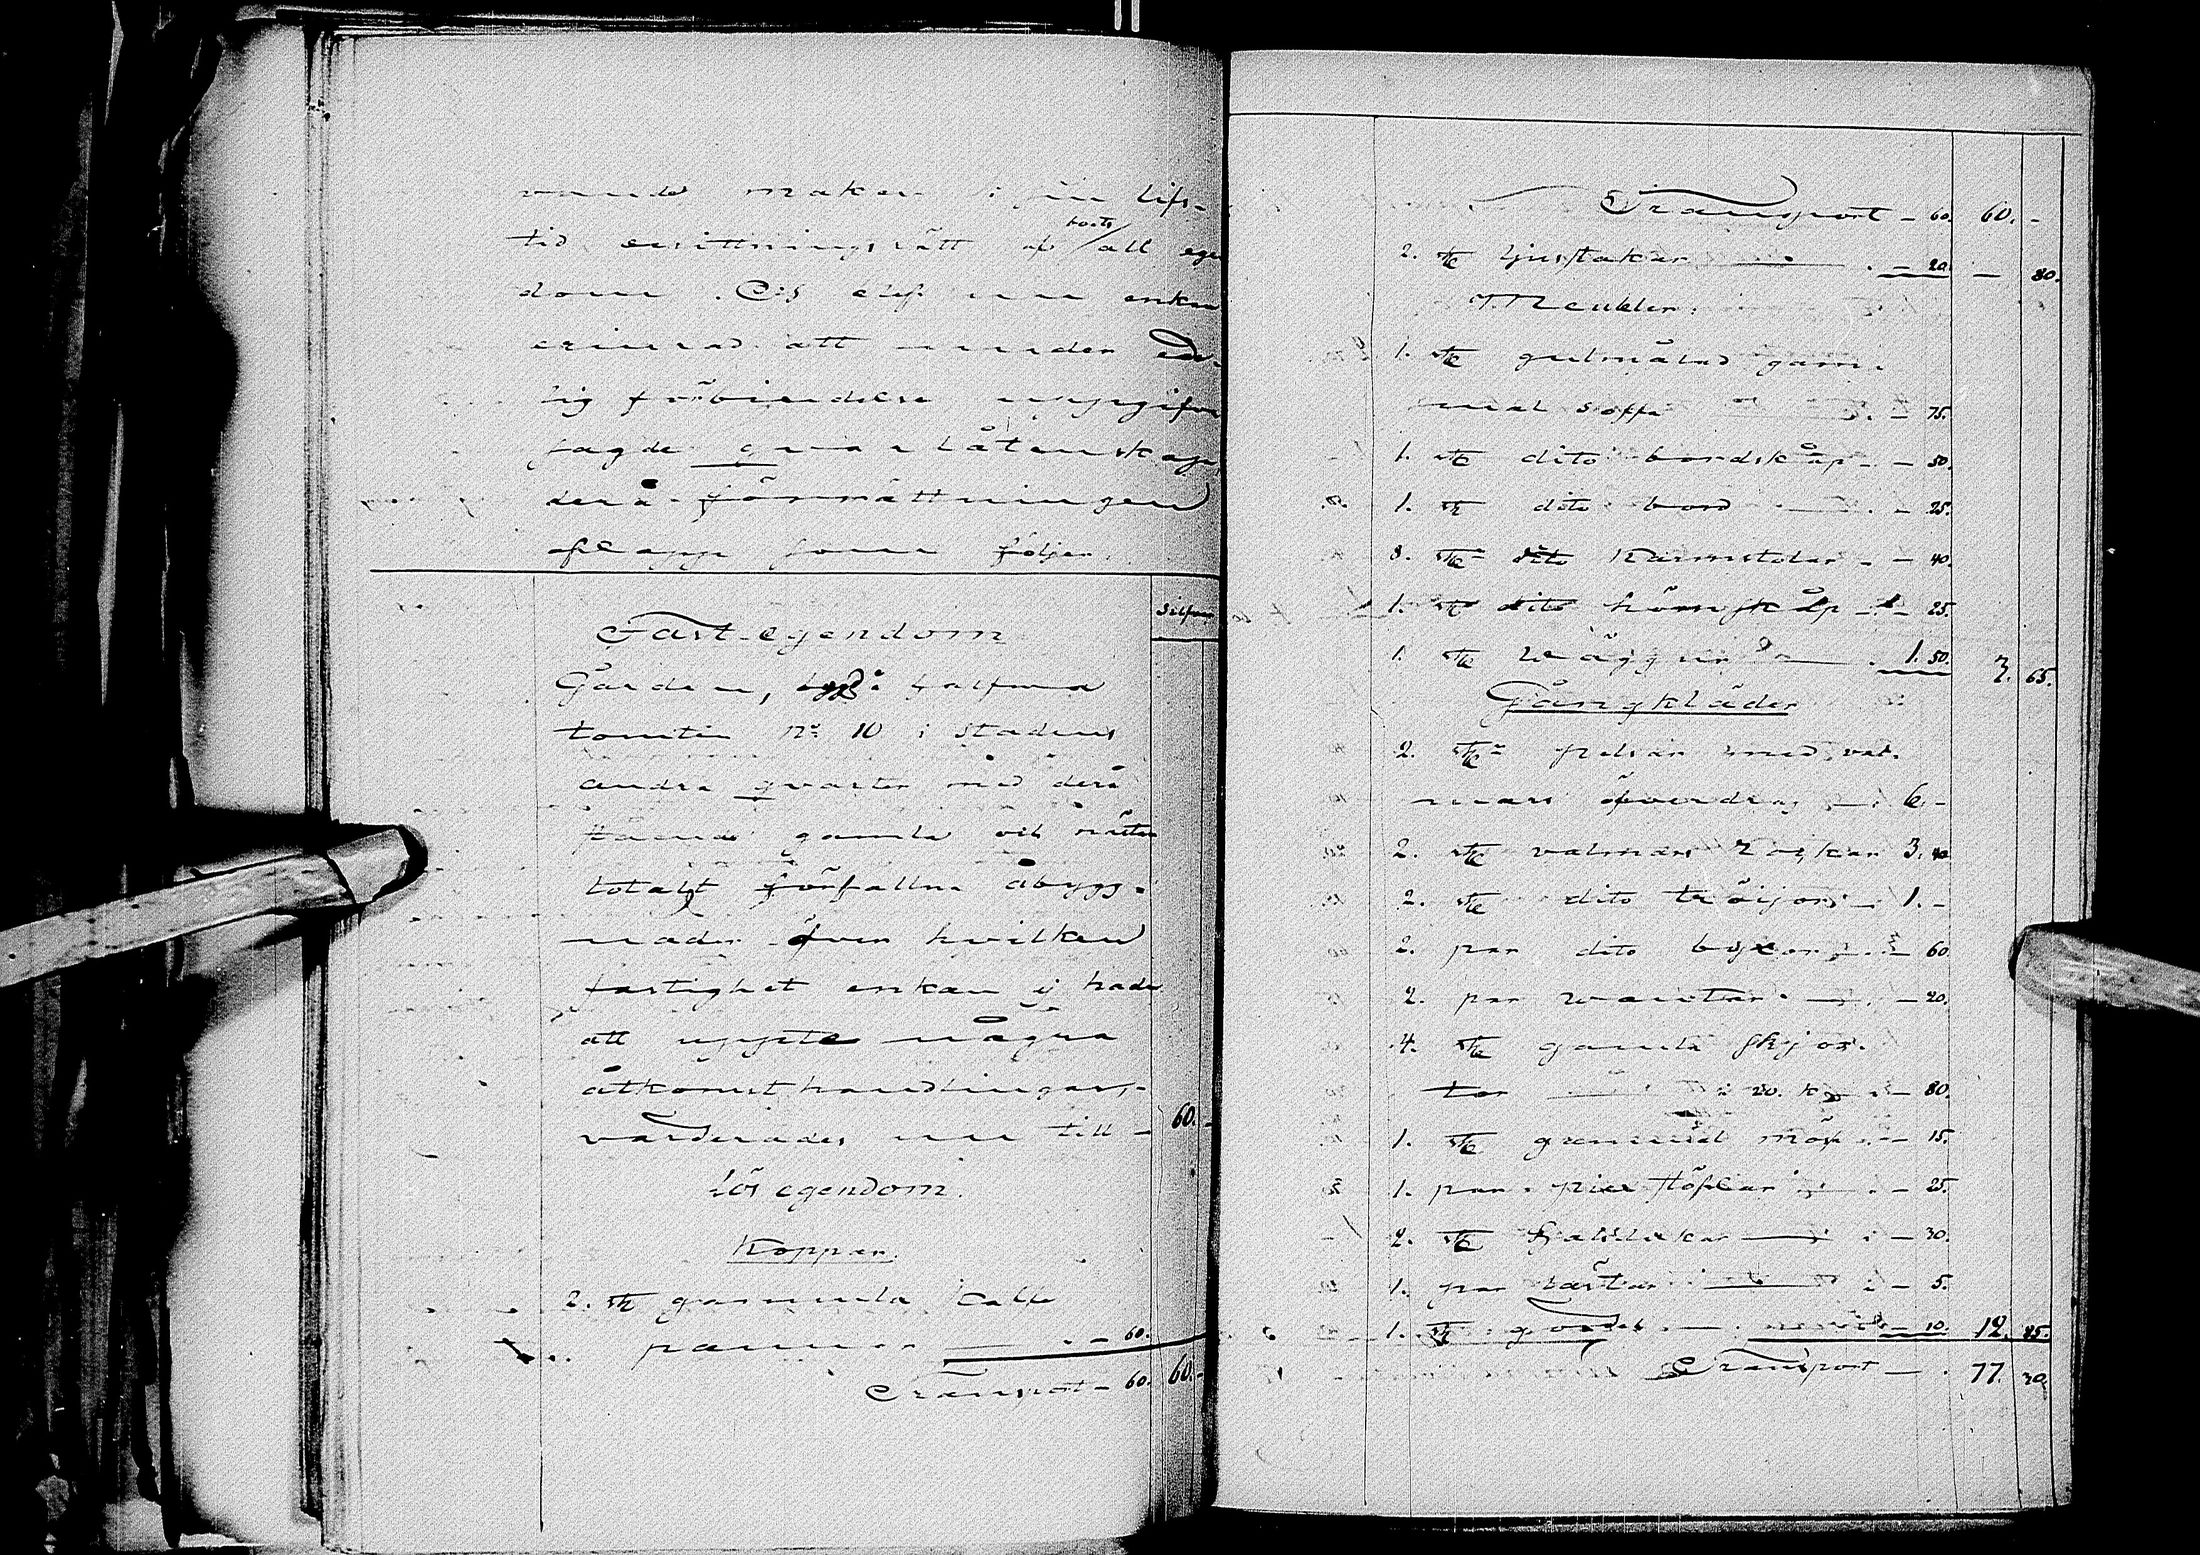 vande maken i sin lifs-
tid besittningsrätt af boets all egen
dom. Och blef nu enkan
erinrad att under ed-
lig förbindelse uppgifva
sagde quarlåtenskap,
derå förrättningen
aflopp som följer.
Silfver
Fast egendom
Gården, halfva
tomten No 10 i stadens
andra qvarter med derå
gamla och nästan
totalt förfallna åbygg-
nader öfver hvilken
fastighet enkan ej hade
att uppte några
åtkomsthandlingar,
värderades nu till — 60. -
Lös egendom.
Koppar.
2. st gammla Caffe
pannor — 60.
Transport — 60. 60. -
Transport — 60. 60. -
2. st ljustakar — 20. — 80.
Meubler.
1. st gulmålad gam-
mal soffa — 75.
1. st dito bordskåp — 50.
1. st dito bord — 25.
3. st dito Karmstolar — 40.
1. st dito hörnskåp — 25.
1. st väggur — 1. 50. 3. 65.
Gångkläder
2. st pelsar med val-
mars öfverdrag — 6. -
2. st valmars rockar 3. 40
2. st dito tröijor — 1. -
2. par dito byxor — 60.
2. par wantar — 20.
4. st gamla skjor-
tor 20. kp — 80.
1. st gammal möss — 15.
1. par töflar — 25.
2. st halsdukar — 30.
1. par — 5.
1. st — 10. 12. 85.
Transport — 77. 30.